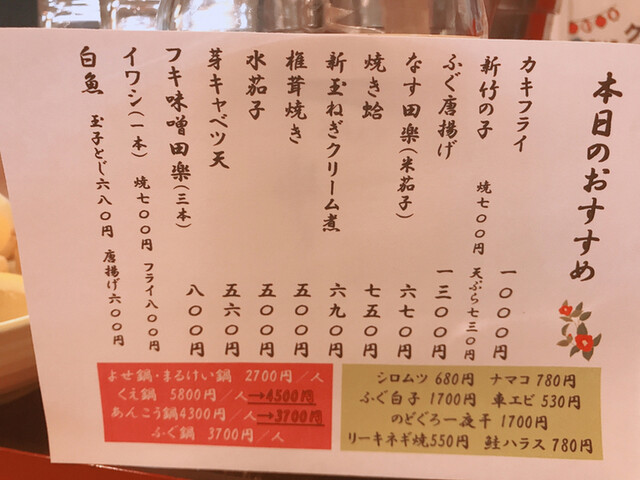 本日のおすすめ
カキフライ 一〇〇〇円
新竹の子 焼七〇〇円 天ぷら七三〇円
ふぐ唐揚げ 一三〇〇円
なす田楽(米茄子) 六七〇円
焼き蛤 七五〇円
新玉ねぎクリーム煮 六九〇円
椎茸焼き 五〇〇円
水茄子 五〇〇円
芽キャベツ天 五六〇円
フキ味噌田楽(三本) 八〇〇円
イワシ(一本) 焼七〇〇円 フライ八〇〇円
白魚 玉子とじ六八〇円 唐揚げ六〇〇円
よせ鍋・まるけい鍋 2700円/人
くえ鍋 5800円/人→4500円
あんこう鍋4300円/人→3700円
ふぐ鍋 3700円/人
シロムツ 680円 ナマコ 780円
ふぐ白子 1700円 車エビ 530円
のどぐろ一夜干 1700円
リーキネギ焼550円 鮭ハラス 780円